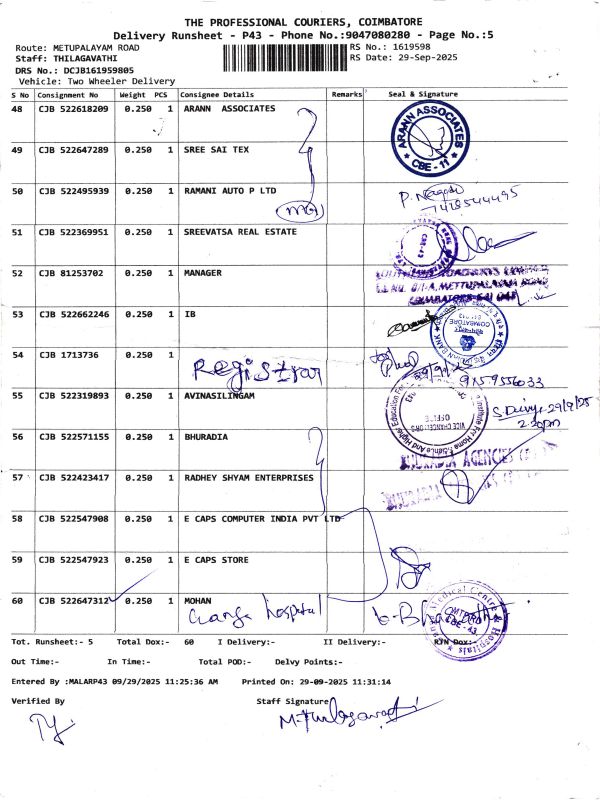 THE PROFESSIONAL COURIERS, COIMBATORE
Delivery Runsheet - P43 - Phone No.:9047080280 - Page No.:5
Route: METUPALAYAM ROAD RS No.: 1619598
Staff: THILAGAVATHI RS Date: 29-Sep-2025
DRS No.: DCJB161959805
Vehicle: Two Wheeler Delivery
S No Consignment No Weight PCS Consignee Details Remarks Seal & Signature
48 CJB 522618209 0.250 1 ARANN ASSOCIATES
ARANN ASSOCIATES
CBE - 11
49 CJB 522647289 0.250 1 SREE SAI TEX
50 CJB 522495939 0.250 1 RAMANI AUTO P LTD
51 CJB 522369951 0.250 1 SREEVATSA REAL ESTATE
52 CJB 81253702 0.250 1 MANAGER
53 CJB 522662246 0.250 1 IB
54 CJB 1713736 0.250 1
Registrar
9159556033
55 CJB 522319893 0.250 1 AVINASILINGAM
VICE CHANCELLOR'S OFFICE
29/9/25
2.30pm
56 CJB 522571155 0.250 1 BHURADIA
BHURADIA AGENCIES
57 CJB 522423417 0.250 1 RADHEY SHYAM ENTERPRISES
58 CJB 522547908 0.250 1 E CAPS COMPUTER INDIA PVT LTD
59 CJB 522547923 0.250 1 E CAPS STORE
60 CJB 522647312 0.250 1 MOHAN
Ganga hospital
Tot. Runsheet:- 5 Total Dox:- 60 I Delivery:- II Delivery:- RTN Dox:-
Out Time:- In Time:- Total POD:- Delvy Points:-
Entered By :MALARP43 09/29/2025 11:25:36 AM Printed On: 29-09-2025 11:31:14
Verified By Staff Signature